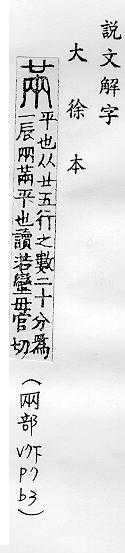 説文解字
大徐本
平也从廿五行之數二十分為
一辰㒳㒼平也讀若蠻毋官切
(㒳部
V7下
P7
b3)